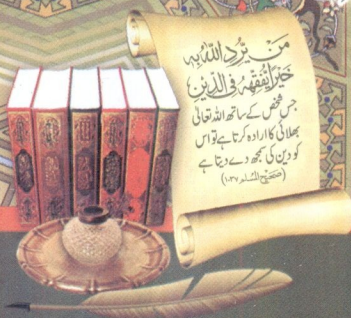 مَن يُّرِدِ اللّٰهُ بِهٖ
خَيْرًا يُّفَقِّهْهُ فِی الدِّيْنِ
جس شخص کے ساتھ اللہ تعالیٰ
بھلائی کا ارادہ کرتا ہے تو اس
کو دین کی سمجھ دے دیتا ہے
(صحیح المسلم ۱۰۳۷)